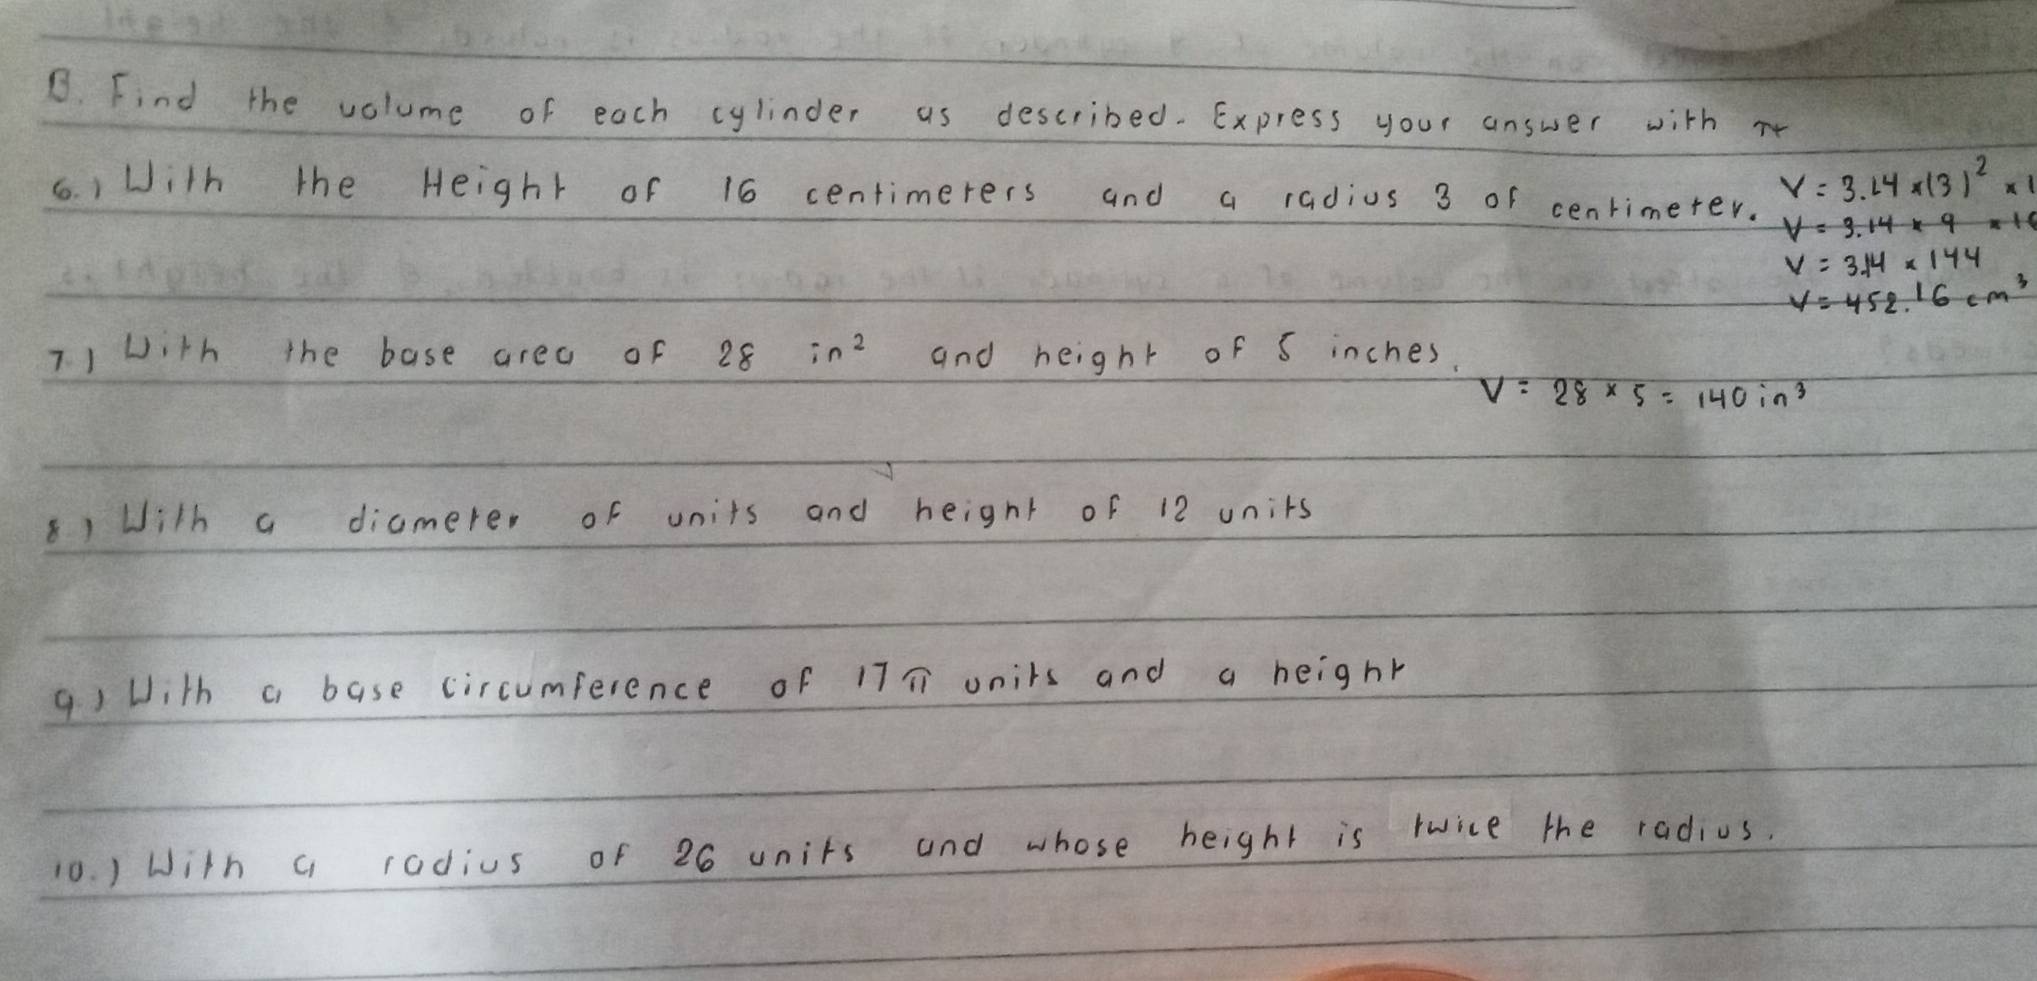 B. Find the volume of each cylinder as described. Express your answer with π
6.) With the Height of 16 centimeters and a radius 3 of centimeter.
V = 3.14 x (3)² x 1
V = 3.14 x 9 x 16
V = 3.14 x 144
V = 452.16 cm³
7.) With the base area of 28 in² and height of 5 inches.
V = 28 x 5 = 140 in³
8.) With a diameter of units and height of 12 units
9.) With a base circumference of 17 π units and a height
10.) With a radius of 26 units and whose height is twice the radius.